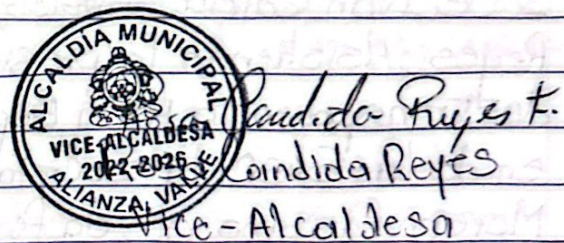 ALCALDÍA MUNICIPAL
VICE-ALCALDESA
2022-2026
ALIANZA, VALLE
Candida Reyes F.
Candida Reyes
Vice-Alcaldesa